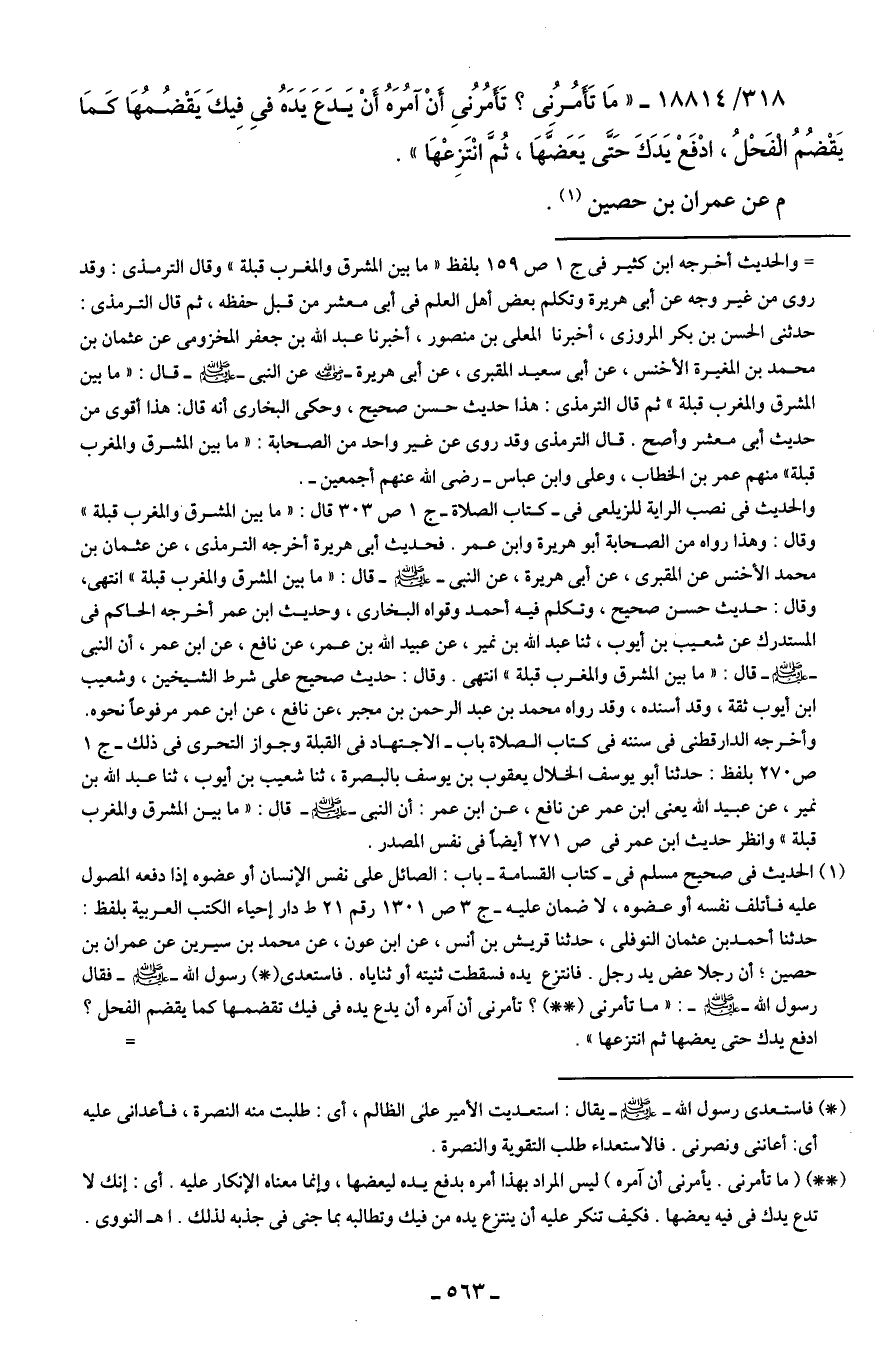 ٣١٨/ ١٨٨١٤ ـ « مَا تَأمُرُنِى ؟ تَأمُرُنِى أَنْ آمُرَهُ أَنْ يَدَعَ يَدَهُ فِى فِيكَ يَقْضُمُهَا كَمَا
يَقْضُمُ الْفَحْلُ ، ادْفَعْ يَدَكَ حَتَّى يَعَضَّهَا ، ثُمَّ انْتَزِعْهَا » .
م عن عمران بن حصين (١) .
= والحديث أخرجه ابن كثير فى ج ١ ص ١٥٩ بلفظ « ما بين المشرق والمغرب قبلة » وقال الترمذى : وقد
روى من غير وجه عن أبى هريرة وتكلم بعض أهل العلم فى أبى معشر من قبل حفظه ، ثم قال الترمذى :
حدثنى الحسن بن بكر المروزى ، أخبرنا المعلى بن منصور ، أخبرنا عبد الله بن جعفر المخزومى عن عثمان بن
محمد بن المغيرة الأخنس ، عن أبى سعيد المقبرى ، عن أبى هريرة ـ رضي الله عنه ـ عن النبى ـ ﷺ ـ قال : « ما بين
المشرق والمغرب قبلة » ثم قال الترمذى : هذا حديث حسن صحيح ، وحكى البخارى أنه قال: هذا أقوى من
حديث أبى معشر وأصح . قال الترمذى وقد روى عن غير واحد من الصحابة : « ما بين المشرق والمغرب
قبلة» منهم عمر بن الخطاب ، وعلى وابن عباس ـ رضى الله عنهم أجمعين ـ .
والحديث فى نصب الراية للزيلعى فى ـ كتاب الصلاة ـ ج ١ ص ٣٠٣ قال : « ما بين المشرق والمغرب قبلة »
وقال : وهذا رواه من الصحابة أبو هريرة وابن عمر . فحديث أبى هريرة أخرجه الترمذى ، عن عثمان بن
محمد الأخنس عن المقبرى ، عن أبى هريرة ، عن النبى ـ ﷺ ـ قال : « ما بين المشرق والمغرب قبلة » انتهى،
وقال : حديث حسن صحيح ، وتكلم فيه أحمد وقواه البخارى ، وحديث ابن عمر أخرجه الحاكم فى
المستدرك عن شعيب بن أيوب ، ثنا عبد الله بن نمير ، عن عبيد الله بن عمر، عن نافع ، عن ابن عمر ، أن النبى
ـ ﷺ ـ قال : « ما بين المشرق والمغرب قبلة » انتهى . وقال : حديث صحيح على شرط الشيخين ، وشعيب
ابن أيوب ثقة ، وقد أسنده ، وقد رواه محمد بن عبد الرحمن بن مجبر ،عن نافع ، عن ابن عمر مرفوعاً نحوه.
وأخرجه الدارقطنى فى سننه فى كتاب الصلاة باب ـ الاجتهاد فى القبلة وجواز التحرى فى ذلك ـ ج ١
ص ٢٧٠ بلفظ : حدثنا أبو يوسف الخلال يعقوب بن يوسف بالبصرة ، ثنا شعيب بن أيوب ، ثنا عبد الله بن
نمير ، عن عبيد الله يعنى ابن عمر عن نافع ، عن ابن عمر : أن النبى ـ ﷺ ـ قال : « ما بين المشرق والمغرب
قبلة » وانظر حديث ابن عمر فى ص ٢٧١ أيضاً فى نفس المصدر .
(١) الحديث فى صحيح مسلم فى ـ كتاب القسامة ـ باب : الصائل على نفس الإنسان أو عضوه إذا دفعه المصول
عليه فأتلف نفسه أو عضوه ، لا ضمان عليه ـ ج ٣ ص ١٣٠١ رقم ٢١ ط دار إحياء الكتب العربية بلفظ :
حدثنا أحمدبن عثمان النوفلى ، حدثنا قريش بن أنس ، عن ابن عون ، عن محمد بن سيرين عن عمران بن
حصين ؛ أن رجلا عض يد رجل . فانتزع يده فسقطت ثنيته أو ثناياه . فاستعدى(*) رسول الله ـ ﷺ ـ فقال
رسول الله ـ ﷺ ـ : « ما تأمرنى (**) ؟ تأمرنى أن آمره أن يدع يده فى فيك تقضمها كما يقضم الفحل ؟
ادفع يدك حتى يعضها ثم انتزعها » . =
(*) فاستعدى رسول الله ـ ﷺ ـ يقال : استعديت الأمير على الظالم ، أى : طلبت منه النصرة ، فأعدانى عليه
أى: أعاننى ونصرنى . فالاستعداء طلب التقوية والنصرة .
(**) ( ما تأمرنى . يأمرنى أن آمره ) ليس المراد بهذا أمره بدفع يده ليعضها ، وإنما معناه الإنكار عليه . أى : إنك لا
تدع يدك فى فيه يعضها . فكيف تنكر عليه أن ينتزع يده من فيك وتطالبه بما جنى فى جذبه لذلك . ا هـ النووى .
ـ ٥٦٣ ـ